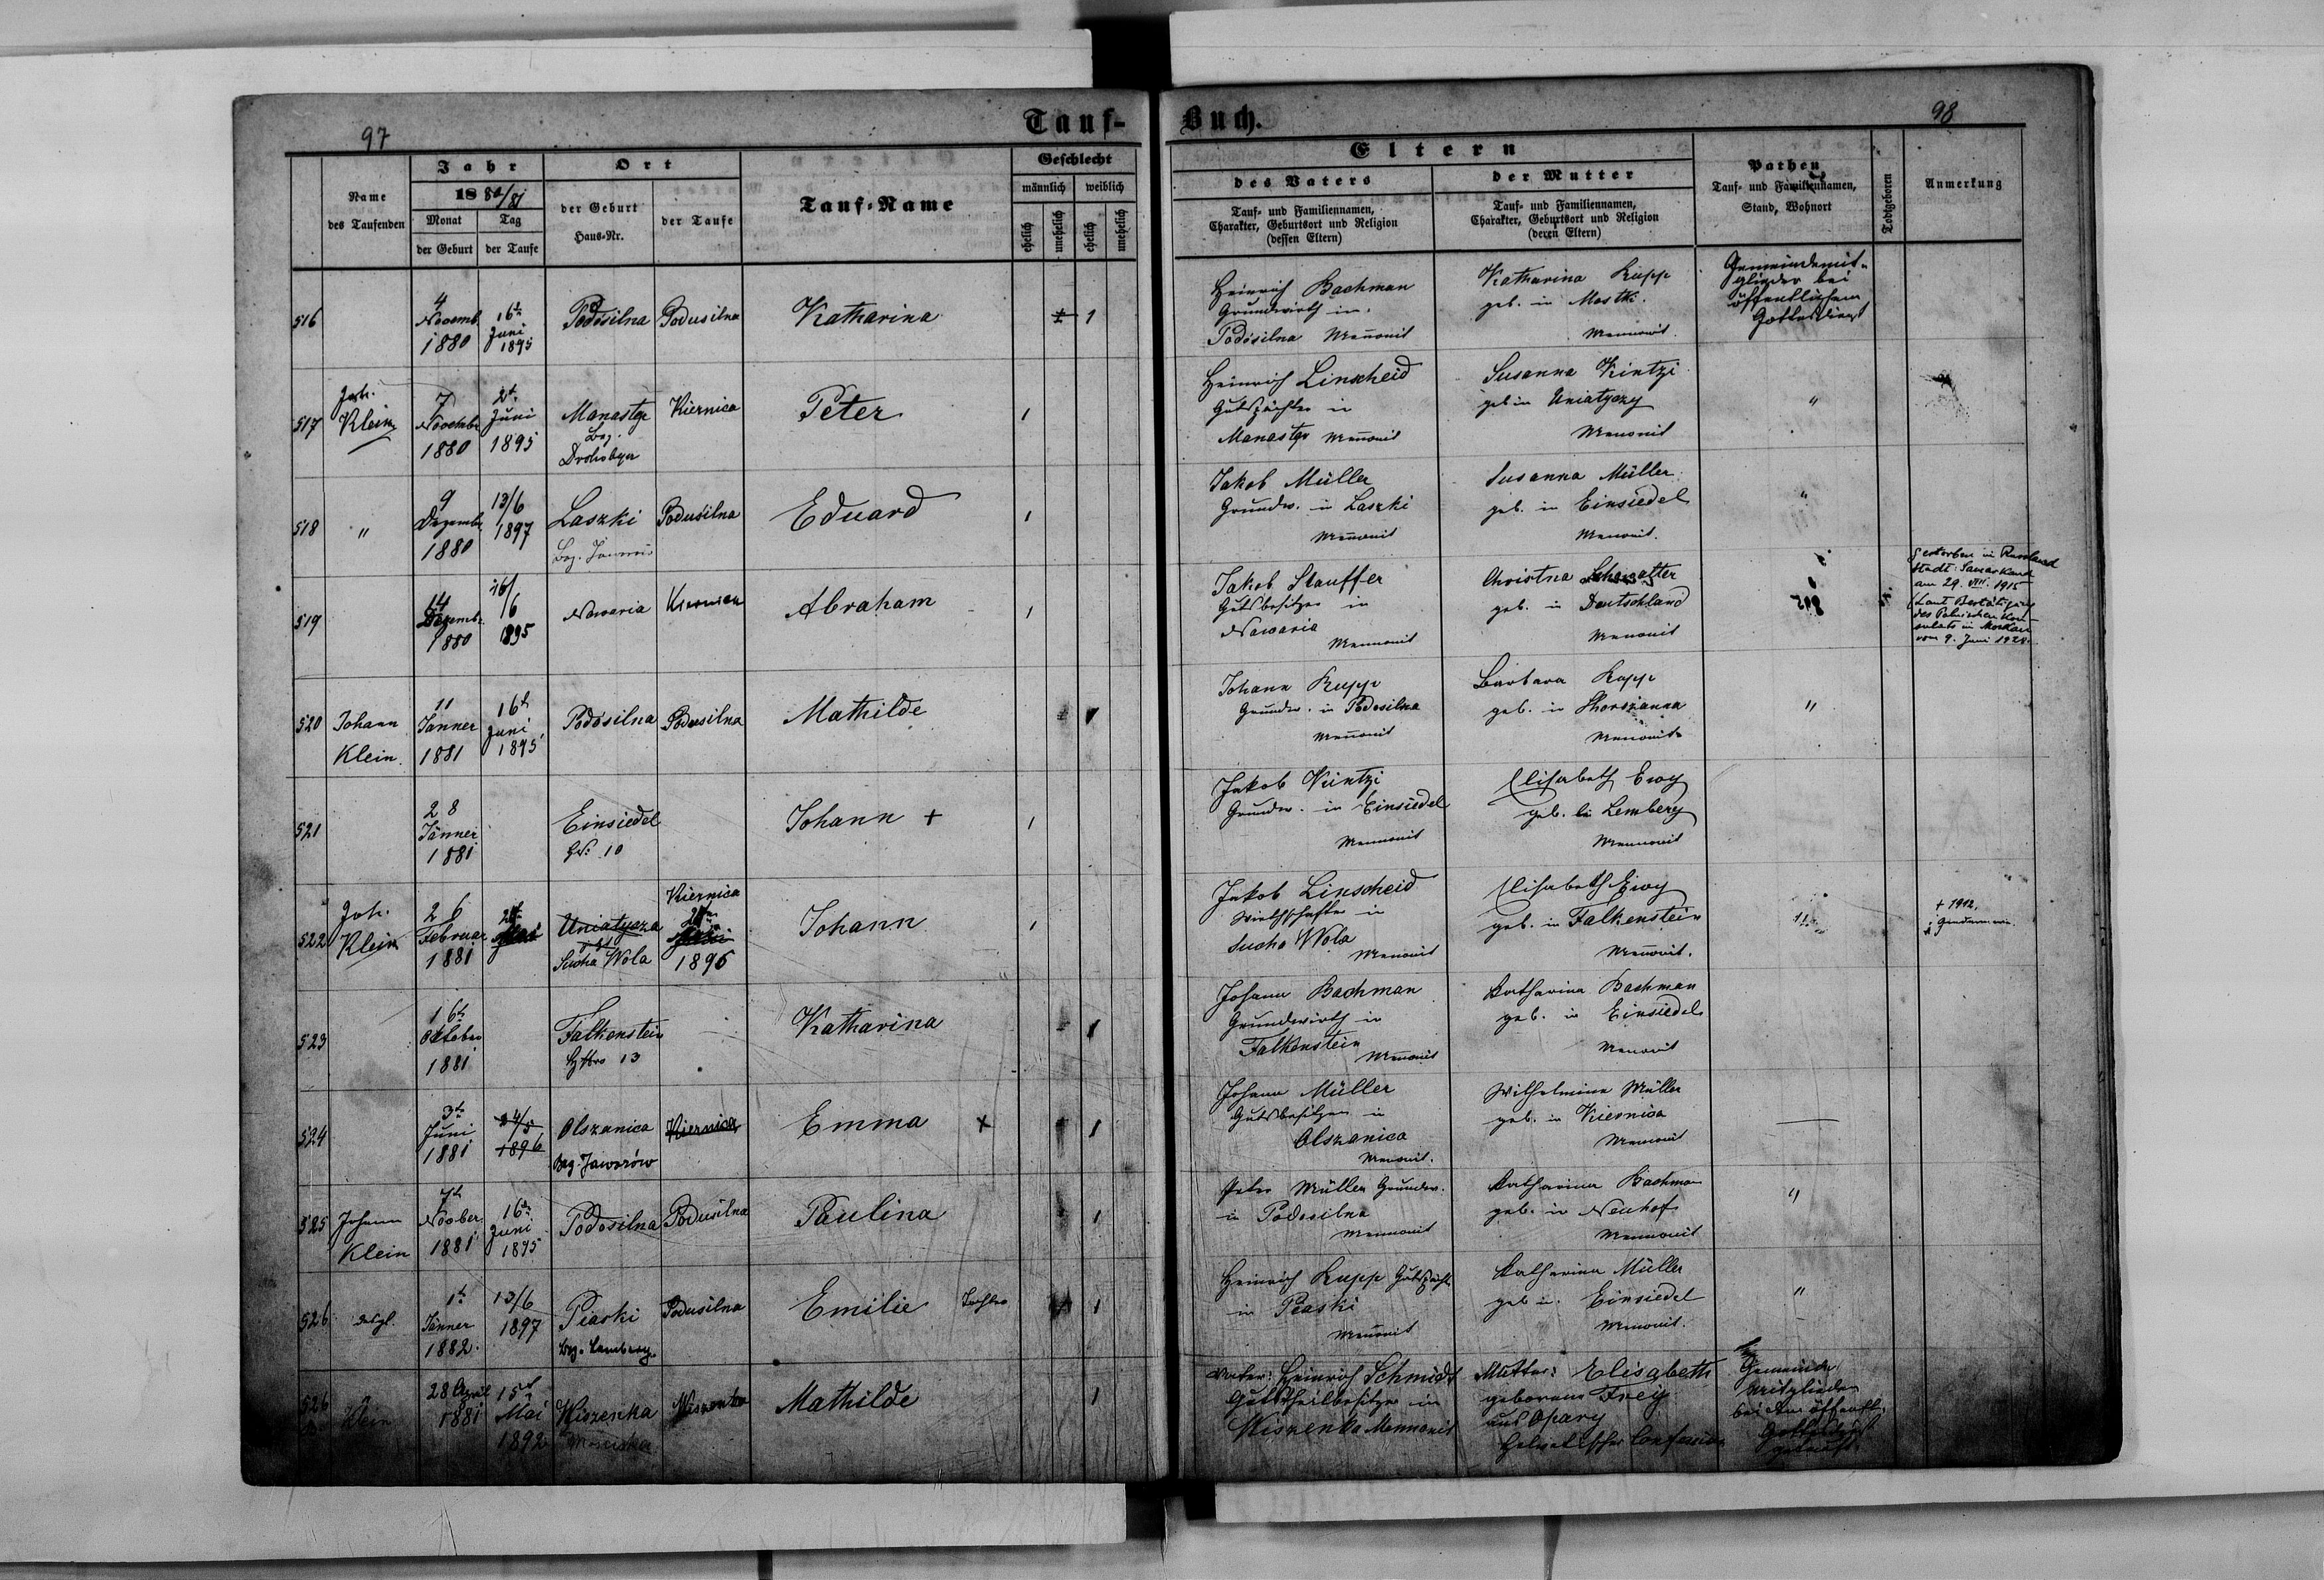 97
Tauf-
Buch.
98
Name
des Taufenden
Jahr
1880/81
Monat
der Geburt
Tag
der Taufe
Ort
der Geburt
Haus-Nr.
der Taufe
Tauf-Name
Geschlecht
männlich
weiblich
ehelich
unehelich
ehelich
unehelich
Eltern
des Vaters
Tauf- und Familiennamen,
Charakter, Geburtsort und Religion
(dessen Eltern)
der Mutter
Tauf- und Familiennamen,
Charakter, Geburtsort und Religion
(deren Eltern)
Pathen
Tauf- und Familiennamen,
Stand, Wohnort
Todtgeboren
Anmerkung
516
4
Novemb.
1880
16t
Juni
1895
Podosilna
Podusilna
Katharina
1
Heinrich Bachman
Grundwirth in
Podosilna Menonit
Katharina Rupp
geb. in Mostki.
Mennonit.
Gemeindemit-
glieder bei
öffentlichem
Gottesdienst
517
Joh.
Klein
7
November
1880
2t
Juni
1895
Manaster
Bez.
Drohobycz
Kiernica
Peter
1
Heinrich Linscheid
Gutspächter in
Manaster Menonit
Susanna Kintzi
geb in Uniatyczy
Menonit
"
518
"
9
Dezemb.
1880
13/6
1897
Laszki
Podusilna
Eduard
1
Jakob Müller
Grundw. in Laszki
Menonit
Susanna Müller
geb. in Einsiedel
Menonit.
"
519
14
Dezemb.
1880
16/
6
1895
Nawaria
Kiernica
Abraham
1
Jakob Stauffer
Gutsbesitzer in
Nawaria
Mennonit
Christna
geb. in Deutschland
Menonit
Gestorben in Russland
Stadt: Samarkand
am 29. VIII. 1915
(Laut Bestätigung
des Polnischen Kon-
sulats in Moskau
vom 9. Juni 1928.
520
Johann
Klein
11
Jänner
1881
16t
Juni
1895
Podosilna
Podusilna
Mathilde
1
Johann Rupp
Grundw. in Podosilna
Menonit
Barbara Rupp
geb. in Horozanna
Menonit
"
521
28
Jänner
1881
Einsiedel
No 10
Johann +
1
Jakob Kintzi
Grundw. in Einsiedel
Mennonit
Elisabeth Ewy
geb. bei Lemberg
Mennonit
522
Joh.
Klein
26
Februar
1881
Uniatycze
Sucha Wola
Kiernica
1896
Johann
1
Jakob Linscheid
Wirthschafter in
Sucha Wola
Menonit
Elisabeth Ewy
geb. in Falkenstein
Menonit.
"
+ 1912,
523
16t
Oktober
1881
Falkenstein
13
Katharina
1
Johann Bachman
Grundwirth in
Falkenstein
Menonit
Katharina Bachman
geb. in Einsiedel
Menonit
524
3t
Juni
1881
24/5
1896
Olszanica
Bez. Jaworów
Kiernica
Emma +
1
Johann Müller
Gutsbesitzer in
Olszanica
Menonit.
Wilhelmine Müller
geb. in Kiernica
Menonit
—
525
Johann
Klein
7t
Novber.
1881
16t
Juni
1895
Podosilna
Podusilna
Paulina
1
Peter Müller Grundw.
in Podosilna
Mennonit
Katharina Bachman
geb. in Neuhof
Mennonit
"
526
detgl.
1t
Jänner
1882.
13/6
1897
Piaski
Bez. Lemberg.
Podusilna
Emilie Tochter
1
Heinrich Rupp Gutspächt.
in Piaski
Menonit
Katharina Müller
geb in Einsiedel
Menonit.
"
526
Klein
28 April
1881
15t
Mai
1892
Wiszenka
Mosciska
Wiszenka
Mathilde
1
Vater: Heinrich Schmidt
Gutstheilbesitzer in
Wiszenka Mennonit
Mutter: Elisabeth
geborene Frey
aus Opary
helvetischer Confession
Gemeinde
Mitglieder
bei dem öffentl.
Gottesdienst
getauft.